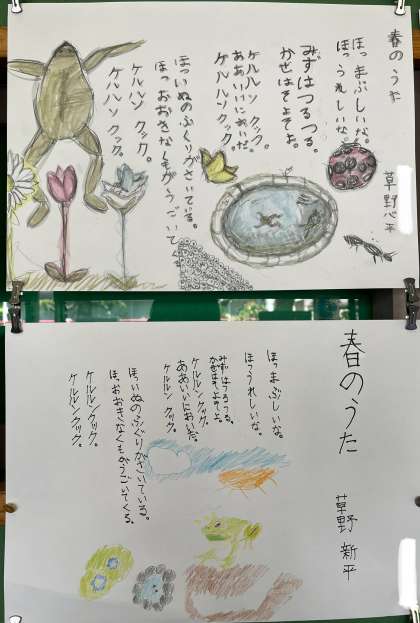 春のうた
草野心平
ほっ まぶしいな。
ほっ うれしいな。
みずはつるつる。
かぜはそよそよ。
ケルルン クック。
ああいいにおいだ。
ケルルン クック。
ほっいぬのふぐりがさいている。
ほっ おおきなくもがうごいてく
ケルルン クック。
ケルルン クック。
春のうた
草野 新平
ほっまぶしいな。
ほっうれしいな。
みずはつるつる。
かぜはそよそよ。
ケルルンクック。
ああいいにおいだ。
ケルルン クック。
ほっいぬのふぐりがさいている。
ほっおおきなくもがうごいてくる。
ケルルンクック。
ケルルンクック。